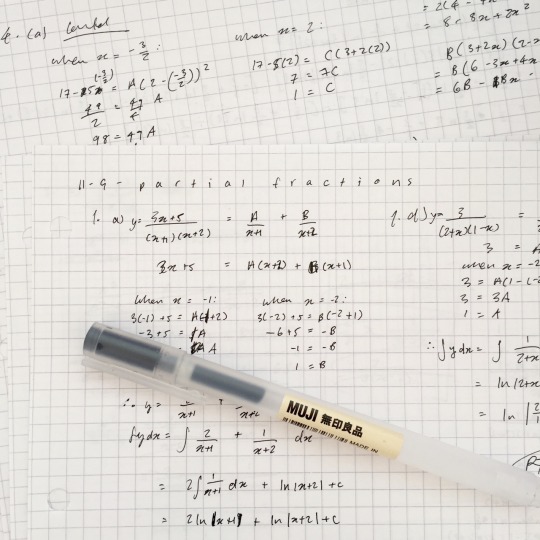 4. (a) 
when x = -3/2 :
17-5(-3/2) = A(2-(-3/2))²
49/2 = 49/4 A
98 = 49A
when x = 2 :
17-5(2) = C(3+2(2))
7 = 7C
1 = C
= 8 - 8x + 2x²
B(3+2x)(2-x
= B(6 - 3x + 4x
= 6B -
11-G - partial fractions
1. a) y = 3x+5/(x+1)(x+2) = A/x+1 + B/x+2
3x+5 = A(x+2) + B(x+1)
when x = -1:
3(-1)+5 = A(-1+2)
-3+5 = A
A
when x = -2:
3(-2)+5 = B(-2+1)
-6+5 = -B
-1 = -B
1 = B
∴ y = /x+1 + /x+2
∫ydx = ∫ 2/x+1 + 1/x+2 dx
= 2∫ 1/x+1 dx + ln|x+2| + c
= 2ln|x+1| + ln|x+2| + c
1. d) y = 3/(2+x)(1-x) =
3 = A
when x = -2
3 = A(1-(-2
3 = 3A
1 = A
∴ ∫ydx = ∫ 1/2+x
= ln|2+x
= ln|2
MUJI 無印良品
MADE IN